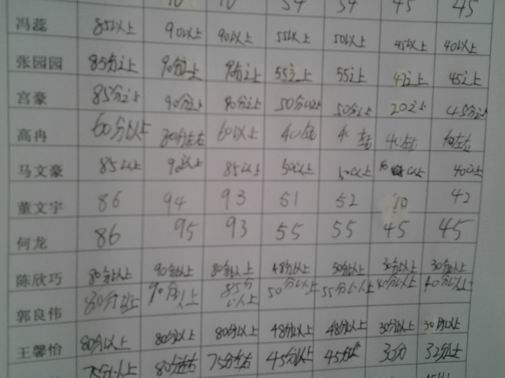 54 54 45 45
冯蕊 85以上 90以上 90以上 55以上 50以上 45以上 40以上
张园园 85分以上 90分以上 90分以上 55以上 55以上 45以上
宫豪 85分以上 90分以上 80分以上 50分以上 50分以上 20以上 45分以上
高冉 60分以上 80分左右 60以上 40左右 40左右 40左右
马文豪 85以上 90以上 85以上 50以上 50以上 40以上
董文宇 86 94 93 51 52 42
何龙 86 95 93 55 55 45 45
陈欣巧 80分以上 90分以上 80分以上 48分以上 50分以上 30分以上 30分以上
郭良伟 80分以上 90分以上 85分以上 50分以上 55分以上 40分以上 40分以上
王馨怡 80分以上 80分以上 80分以上 48分以上 48分以上 30分以上 30分以上
75分以上 80分左右 75分左右 45分以上 45分 30分 32分左右